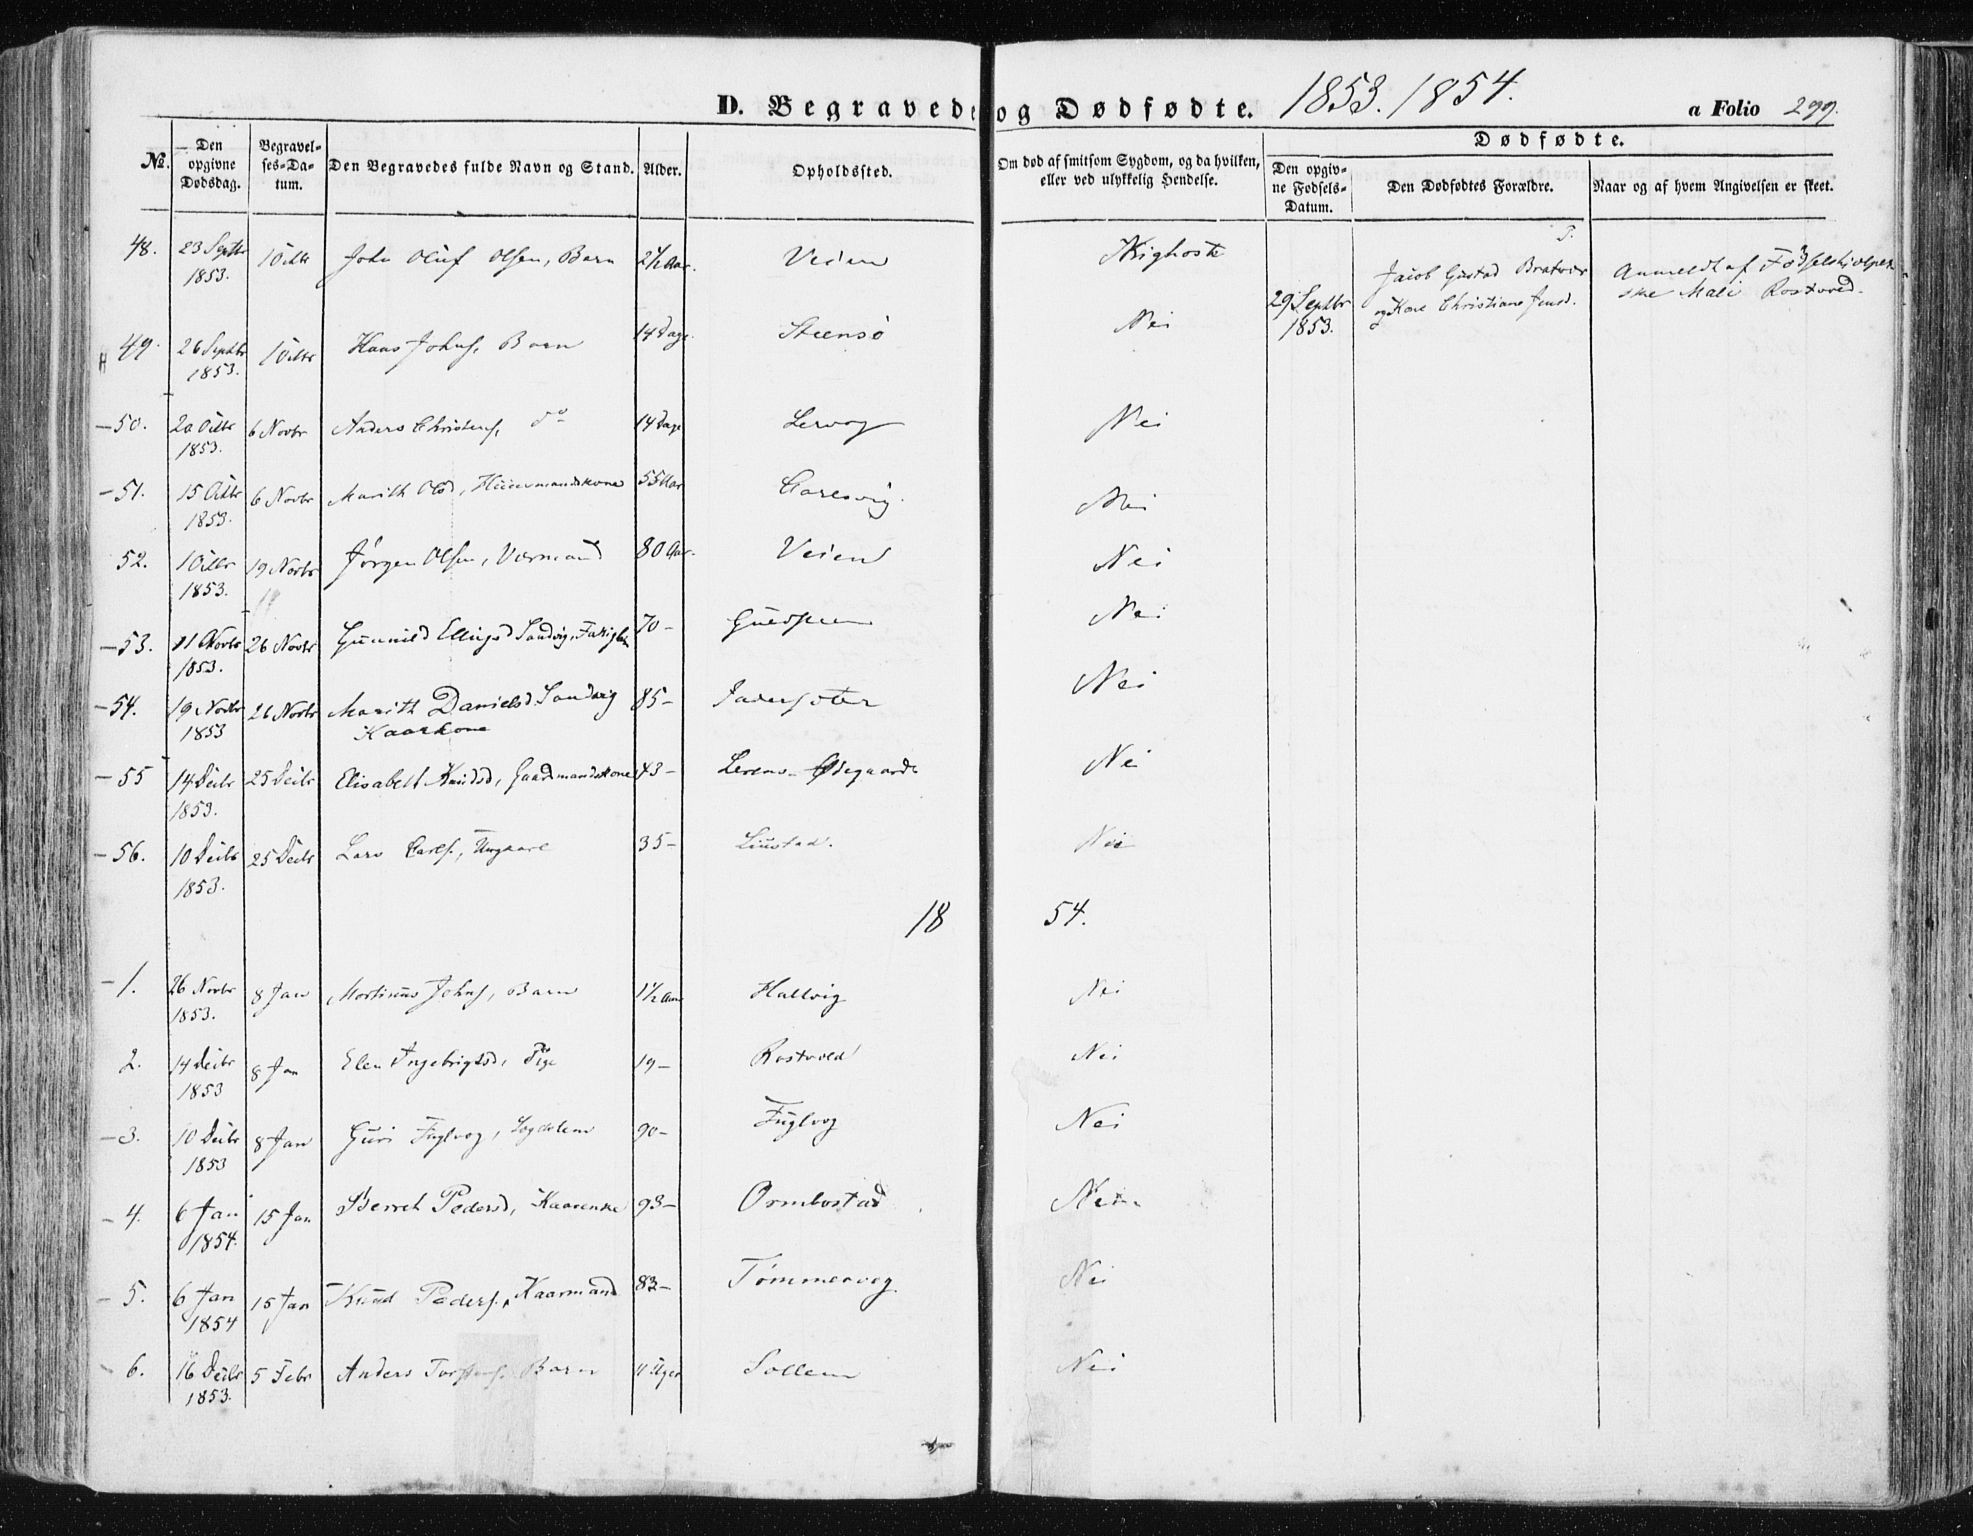 D. Begravede og Dødfødte. 1853. 1854.
a Folio 299.
No. Den opgivne Dødsdag. Begravelses-Datum. Den Begravedes fulde Navn og Stand. Alder. Opholdssted. Om død af smitsom Sygdom, og da hvilken, eller ved ulykkelig Hendelse.
Dødfødte.
Den opgivne Fødsels-Datum. Den Dødfødtes Forældre. Naar og af hvem Angivelsen er skeet.
48. 23 Septbr 1853. 1 Octbr John Oluf Olsen, Barn 2½ Aar. Veien Kighoste
29 Septbr 1853. Jacob Gustad Bratvær og Kone Christiane Jensd. Anmeldt af Fødselshjelperske Mali Rostvoed.
49. 26 Septbr 1853. 1 Octbr Hans Johns. Barn 14 Dage. Steensø Nei
50. 20 Octbr 1853. 6 Novbr Anders Christens, do 14 Dage Lervog Nei
51. 15 Octbr 1853. 6 Novbr Marith Olsd, Huusmandskone 55 Aar Carlsvig. Nei
52. 1 Octbr 1853. 19 Novbr Jørgen Olsen, 80 Aar. Veien Nei
53. 11 Novbr 1853. 26 Novbr Gunnild Ellingsd Sandvig, 70- Nei
54. 19 Novbr 1853 26 Novbr Marith Danielsd Sandvig Kaarkone 85- Nei
55 14 Decbr 1853. 25 Decbr Elisabeth Knudsd, Gaardmandskone 43- Lerens-Ødegaard Nei
56. 10 Decbr 1853. 25 Decbr Lars Carls., Ungkarl 35- Liustad. Nei
18 54.
1. 26 Novbr 1853. 8 Jan Martinus Johns, Barn 1½ Aar Hallvig Nei
2. 14 Decbr 1853 8 Jan Elen Ingebrigtsd, Pige 19- Rostvold Nei
3. 10 Decbr 1853 8 Jan Guri Fuglvog, 90- Fuglvog Nei
4. 6 Jan 1854. 15 Jan Berret Pedersd, Kaarenke 93- Ormbostad Nei
5. 6 Jan 1854 15 Jan Knud Peders., Kaarmand 83- Tømmervog. Nei
6. 16 Decbr 1853. 5 Febr Anders Torstens, Barn 11 Uger Sollem Nei